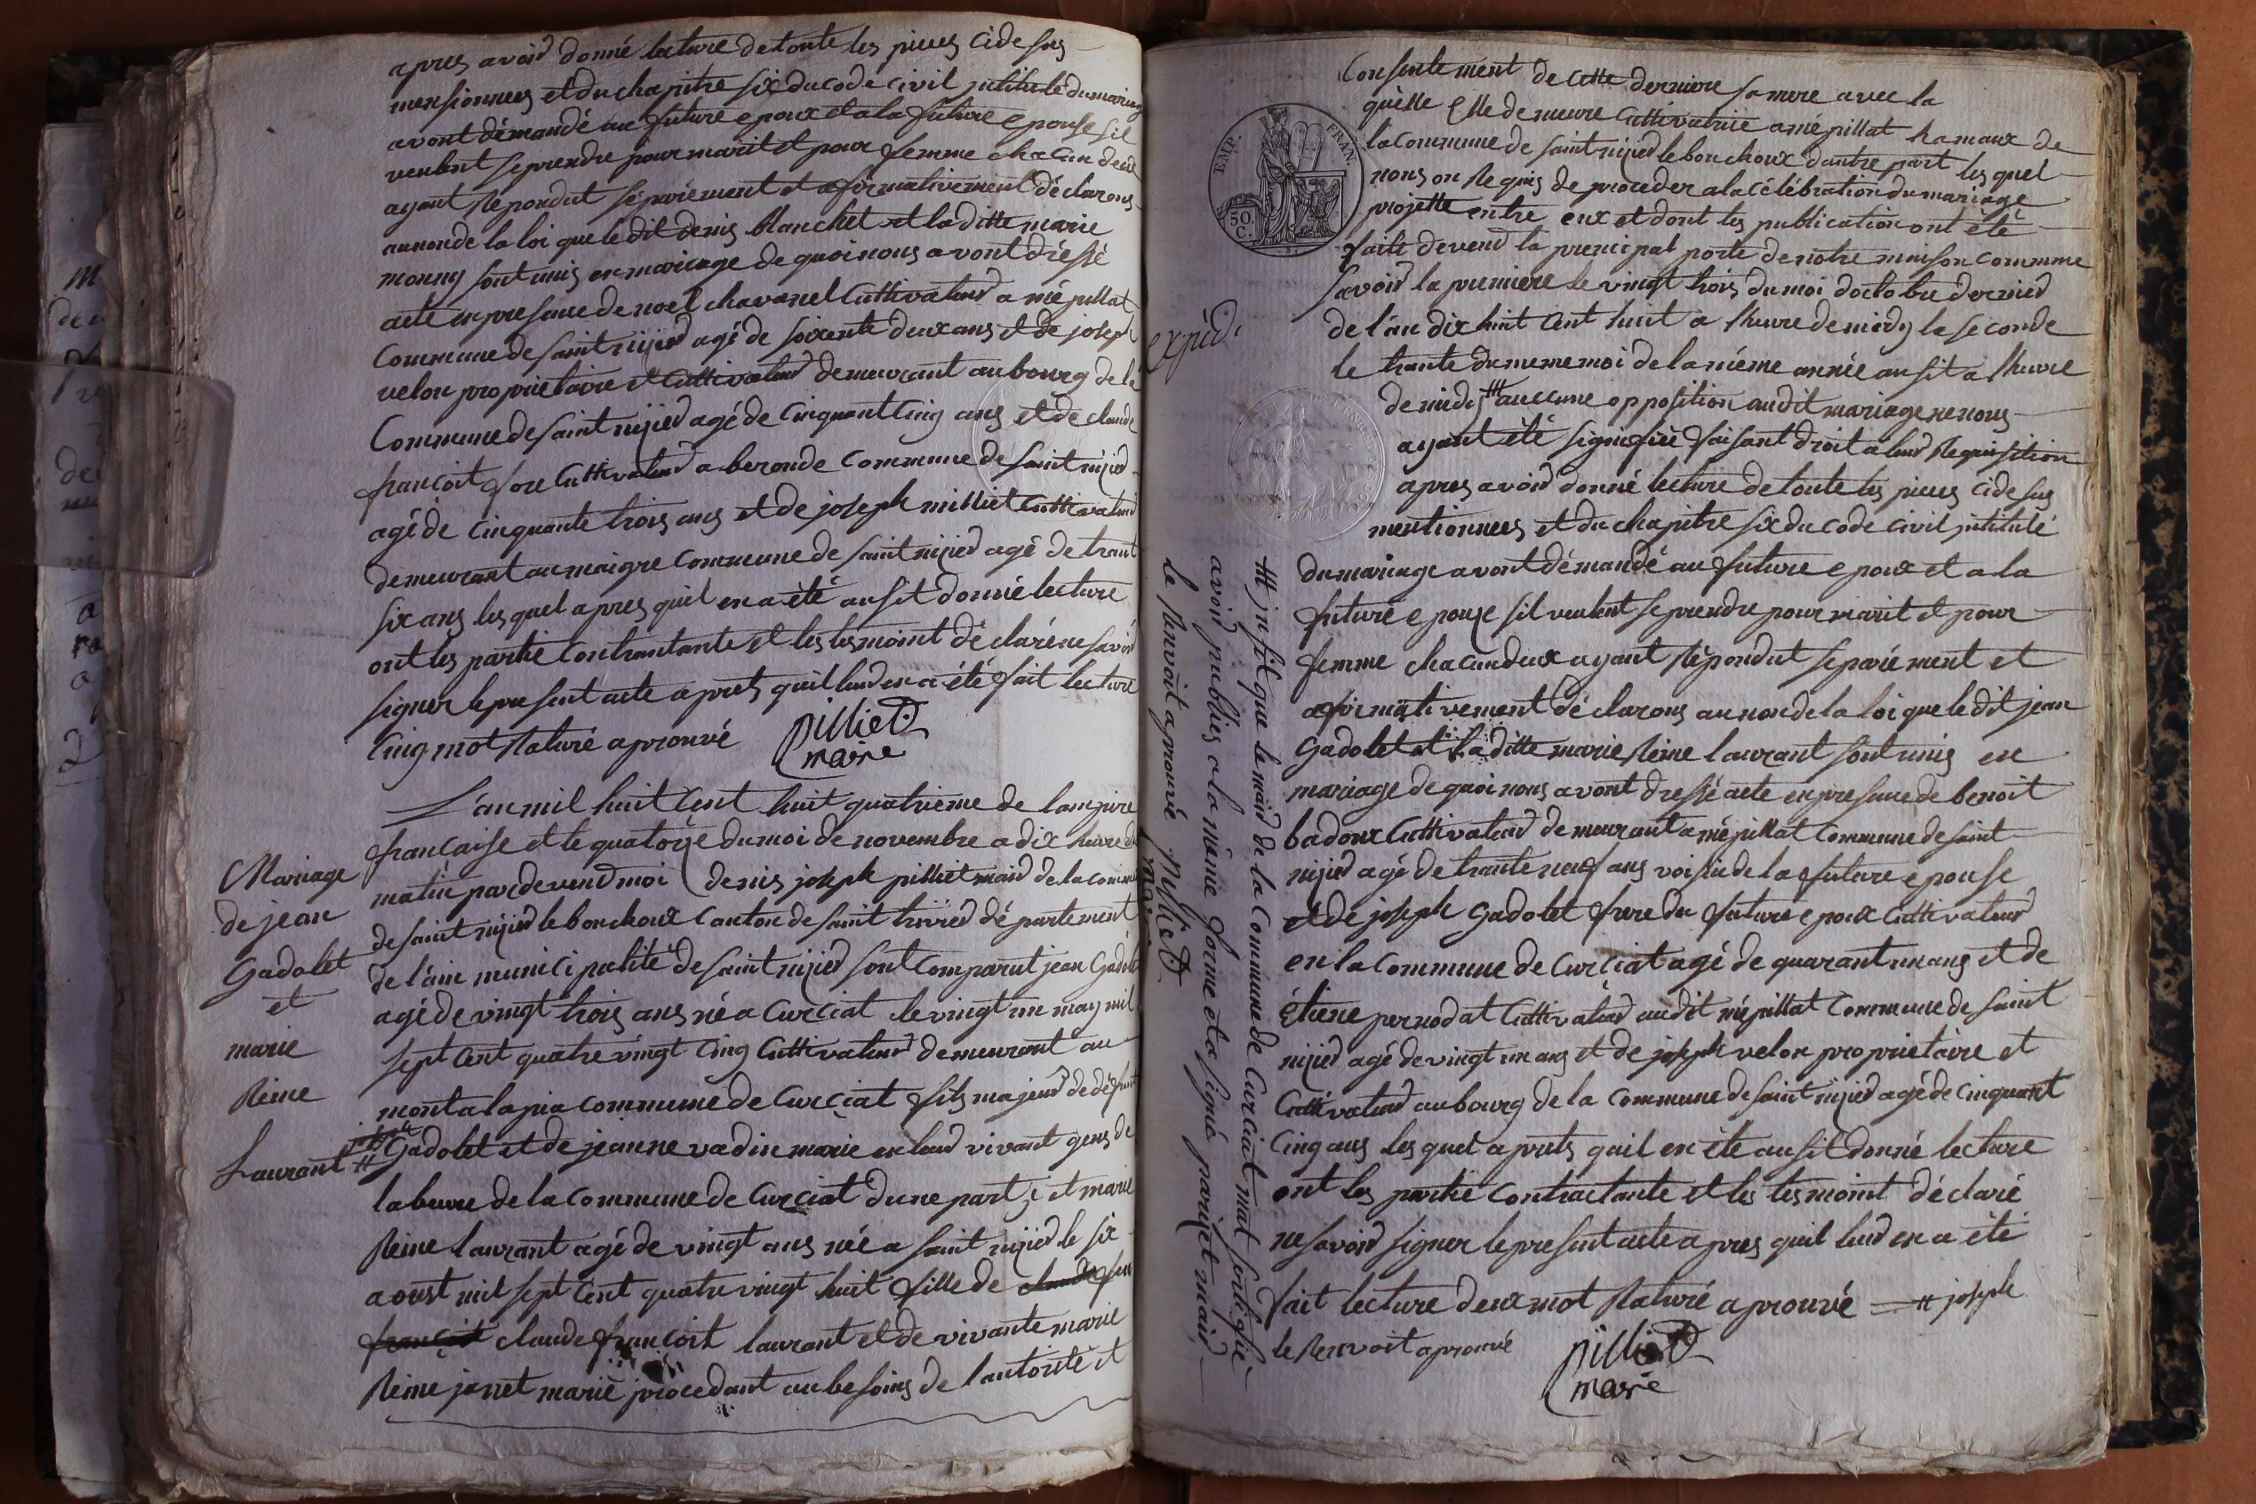 apres avoir donné lecture de toute les pieces cidesus
mensionnees et du chapitre six du code civil intitulé du mariage
avont démandé au future epoux et a la future epouse sil
veulent se prendre pour marit et pour femme chacun deux
ayant repondut séparément et afirmativement déclarons
au nonde la loi que le dit denis blanchet et la ditte marie
monny sont unis en mariage de quoi nous avont dréssé
acte en presance de noel chavanel Cultivateur a mépillat
Commune de saint nijier agé de soixente deux ans et de joseph
velon propriétaire et Cultivateur demeurant au bourg de la
Commune de saint nijier agé de Cinquant Cinq ans et de claude
francoit fore Cultivateur a beronde Commune de saint nijier
agé de Cinquante trois ans et de joseph milliet Cultivateur
demeurant au maigre Commune de saint nijier agé de trant
six ans les quel apres quil en a été ausit donné lecture
ont les partie Contractante et les tesmoint déclaré ne savoir
signer le present acte aprets quil leur en a été fait lecture
Cinq mot raturé aprouvé pilliet
maire
L'an mil huit Cent huit quatrieme de lampire
francaise et le quatorze du moi de novembre a dix heure du
matin pardevend moi denis joseph pilliet mair de la commune
de saint nijier le bouchoux Canton de saint trivier département
de l'ain municipalité de saint nijier sont Comparut jean Gadolet
agé de vingt trois ans né a Curciat le vingt un may mil
sept Cent quatre vingt Cinq Cultivateur demeurant au
montalapia commune de Curciat fils majeur de défunt
Gadolet et de jeanne vadin marie en leur vivant gens de
labeure de la Commune de Curciat dune part; et marie
Reine laurant agé de vingt ans née a saint nijier le six
aoust mil sept Cent quatre vingt huit fille de claude feu
francoit claude francoit laurant et de vivante marie
Reine janet marié procedant au besoins de lautorité et
Mariage
de jean
Gadolet
et
marie
Reine
Laurant
Consentement de cette derniere sa mere avec la
quelle Elle demeure Cultivatrice a mépillat hamaux de
la Commune de saint nijier le bouchoux dautre part les quel
nous on requis de proceder a la célébration du mariage
projetté entre eux et dont les publication ont été
faite devend la principal porte de notre maison commune
savoir la premiere le vingt trois du moi doctobre dernier
de l'an dix huit Cent huit a lheure de midy la seconde
le trante du meme moi de la méme année ausit a lheure
de midy aucune opposition audit mariage ne nous
ayant été signifiée faisant droit a leur requisition
apres avoir donné lecture de toute les pieces cidesus
mentionnees et du chapitre six du code civil intitulé
du mariage avont démandé au future epoux et a la
future epouze sil veulent se prendre pour marit et pour
femme chacun deux ayant répondut separément et
afirmativement déclarons au nonde la loi que le dit jean
Gadolet et la ditte marie Reine laurant sont unis en
mariage de quoi nous avont dressé acte en presance de benoit
badoux Cultivateur demeurant a mépillat Commune de saint
nijier agé de trante neuf ans voisin de la future epouse
et de joseph Gadolet frere du future epoux Cultivateur
en la Commune de Curciat agé de quarant un ans et de
étiene pernodat Cultivateur audit mépillat Commune de saint
nijier agé de vingt un ans et de joseph velon propriétaire et
Cultivateur au bourg de la Commune de saint nijier agé de Cinquant
Cinq ans les quel aprets quil en été ausit donné lecture
ont les partie Contractante et les tesmoint déclaré
ne savoir signer le present acte apres quil leur en a été
fait lecture deux mot raturé aprouvé joseph
le Renvoit aprouvé pilliet
maire
expéd.
insit que le mair de la Commune de Curciat mat sertifié
avoir publiés a la méme forme et a signé parizet mair
le renvoit aprouvé pilliet
maire
EMP. FRAN.
50 C.